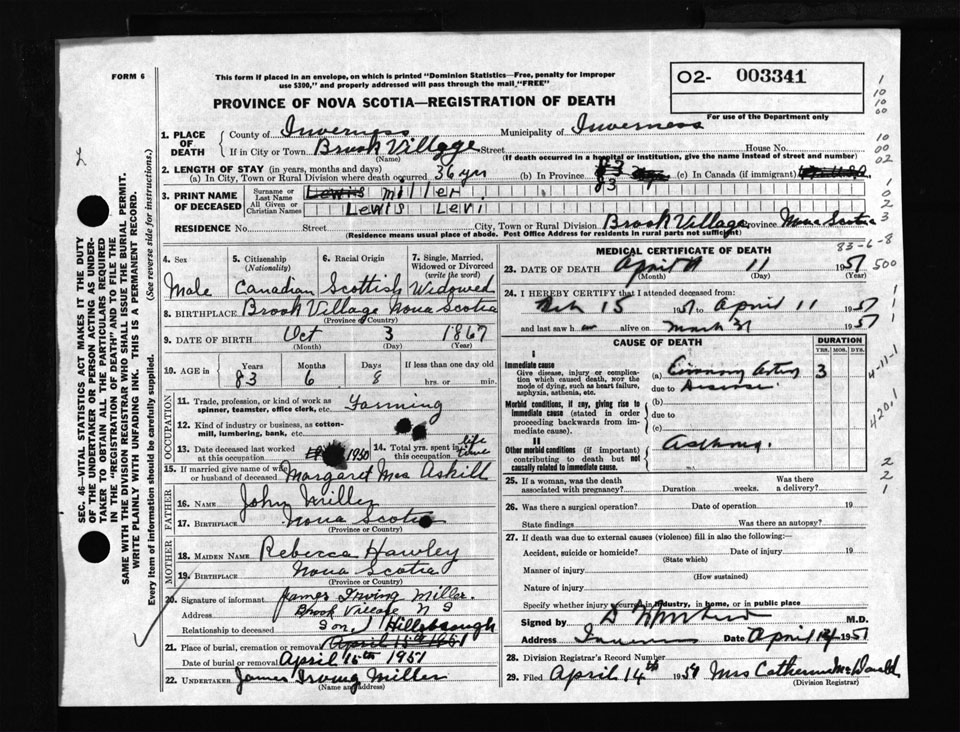 FORM 6
This form if placed in an envelope, on which is printed "Dominion Statistics—Free, penalty for improper
use $300," and properly addressed will pass through the mail "FREE"
PROVINCE OF NOVA SCOTIA—REGISTRATION OF DEATH
O2- 003341
For use of the Department only
1. PLACE OF DEATH
County of Inverness Municipality of Inverness
If in City or Town Brook Village Street House No.
(Name) (If death occurred in a hospital or institution, give the name instead of street and number)
2. LENGTH OF STAY (in years, months and days)
(a) In City, Town or Rural Division where death occurred 36 yrs (b) In Province 83 (c) In Canada (if immigrant)
3. PRINT NAME OF DECEASED
Surname or Last Name Lewis Miller
All Given or Christian Names Lewis Levi
RESIDENCE No. Street City, Town or Rural Division Brook Village Province Nova Scotia
(Residence means usual place of abode. Post Office Address for residents in rural parts not sufficient)
4. Sex
Male
5. Citizenship
(Nationality)
Canadian
6. Racial Origin
Scottish
7. Single, Married,
Widowed or Divorced
(write the word)
Widowed
8. BIRTHPLACE Brook Village Nova Scotia
(Province or Country)
9. DATE OF BIRTH Oct 3 1867
(Month) (Day) (Year)
10. AGE in Years Months Days If less than one day old
83 6 8 hrs. or min.
OCCUPATION
11. Trade, profession, or kind of work as
spinner, teamster, office clerk, etc. Farming
12. Kind of industry or business, as cotton-
mill, lumbering, bank, etc.
13. Date deceased last worked
at this occupation 1950
14. Total yrs. spent in
this occupation life time
15. If married give name of wife
or husband of deceased Margaret MacAskill
FATHER
16. NAME John Miller
17. BIRTHPLACE Nova Scotia
(Province or Country)
MOTHER
18. MAIDEN NAME Rebecca Hawley
19. BIRTHPLACE Nova Scotia
(Province or Country)
20. Signature of informant James Irving Miller.
Address Brook Village N S
Relationship to deceased Son
Hillsborough
21. Place of burial, cremation or removal April 15th 1951
Date of burial or removal April 15th 1951
22. UNDERTAKER James Irving Miller
(Name and address)
MEDICAL CERTIFICATE OF DEATH
83-6-8
23. DATE OF DEATH April 11 1951
(Month) (Day) (Year)
500
24. I HEREBY CERTIFY that I attended deceased from:
Feb 15 1951 to April 11 1951
and last saw h alive on March 31 1951
CAUSE OF DEATH
DURATION
YRS. MOS. DYS.
I
Immediate cause
Give disease, injury or complica-
tion which caused death, NOT the
mode of dying, such as heart failure,
asphyxia, asthenia, etc.
(a) Coronary Artery 3
due to Disease
Morbid conditions, if any, giving rise to
immediate cause (stated in order
proceeding backwards from im-
mediate cause).
(b)
due to
(c)
II
Other morbid conditions (if important)
contributing to death but not
causally related to immediate cause.
Asthma.
4-11-1
420.1
25. If a woman, was the death
associated with pregnancy? Duration weeks. Was there
a delivery?
26. Was there a surgical operation? Date of operation 19
State findings Was there an autopsy?
27. If death was due to external causes (violence) fill in also the following:—
Accident, suicide or homicide? Date of injury 19
(State which)
Manner of injury
(How sustained)
Nature of injury
Specify whether injury occurred in industry, in home, or in public place
Signed by M.D.
Address Inverness Date April 14 1951
28. Division Registrar's Record Number
29. Filed April 14th 1951 Mrs Catherine McDonald
(Division Registrar)
SEC. 46—VITAL STATISTICS ACT MAKES IT THE DUTY
OF THE UNDERTAKER OR PERSON ACTING AS UNDER-
TAKER TO OBTAIN ALL THE PARTICULARS REQUIRED
IN THE "REGISTRATION OF DEATH" AND TO FILE THE
SAME WITH THE DIVISION REGISTRAR WHO SHALL ISSUE THE BURIAL PERMIT.
WRITE PLAINLY WITH UNFADING INK. THIS IS A PERMANENT RECORD.
Every item of information should be carefully supplied. (See reverse side for instructions.)